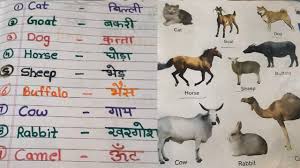 ① Cat - बिल्ली
② Goat - बकरी
③ Dog - कुत्ता
④ Horse - घोड़ा
⑤ Sheep - भेड़
⑥ Buffalo - भैंस
Cow - गाय
Rabbit - खरगोश
Camel - ऊँट
Cat
Goat
Dog
Horse
Sheep
Buffalo
Cow
Rabbit
Camel